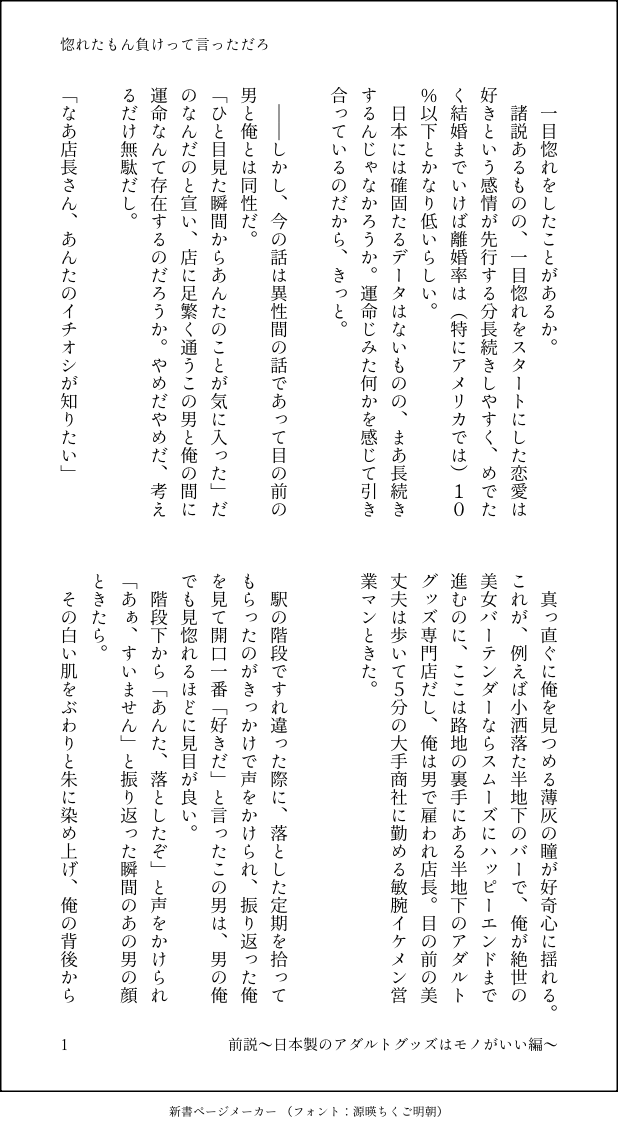 惚れたもん負けって言っただろ
一目惚れをしたことがあるか。
諸説あるものの、一目惚れをスタートにした恋愛は
好きという感情が先行する分長続きしやすく、めでた
く結婚までいけば離婚率は（特にアメリカでは）１０
％以下とかなり低いらしい。
日本には確固たるデータはないものの、まあ長続き
するんじゃなかろうか。運命じみた何かを感じて引き
合っているのだから、きっと。
――しかし、今の話は異性間の話であって目の前の
男と俺とは同性だ。
「ひと目見た瞬間からあんたのことが気に入った」だ
のなんだのと宣い、店に足繁く通うこの男と俺の間に
運命なんて存在するのだろうか。やめだやめだ、考え
るだけ無駄だし。
「なあ店長さん、あんたのイチオシが知りたい」
真っ直ぐに俺を見つめる薄灰の瞳が好奇心に揺れる。
これが、例えば小洒落た半地下のバーで、俺が絶世の
美女バーテンダーならスムーズにハッピーエンドまで
進むのに、ここは路地の裏手にある半地下のアダルト
グッズ専門店だし、俺は男で雇われ店長。目の前の美
丈夫は歩いて５分の大手商社に勤める敏腕イケメン営
業マンときた。
駅の階段ですれ違った際に、落とした定期を拾って
もらったのがきっかけで声をかけられ、振り返った俺
を見て開口一番「好きだ」と言ったこの男は、男の俺
でも見惚れるほどに見目が良い。
階段下から「あんた、落としたぞ」と声をかけられ
「あぁ、すいません」と振り返った瞬間のあの男の顔
ときたら。
その白い肌をぶわりと朱に染め上げ、俺の背後から
1
前説〜日本製のアダルトグッズはモノがいい編〜
新書ページメーカー （フォント：源暎ちくご明朝）